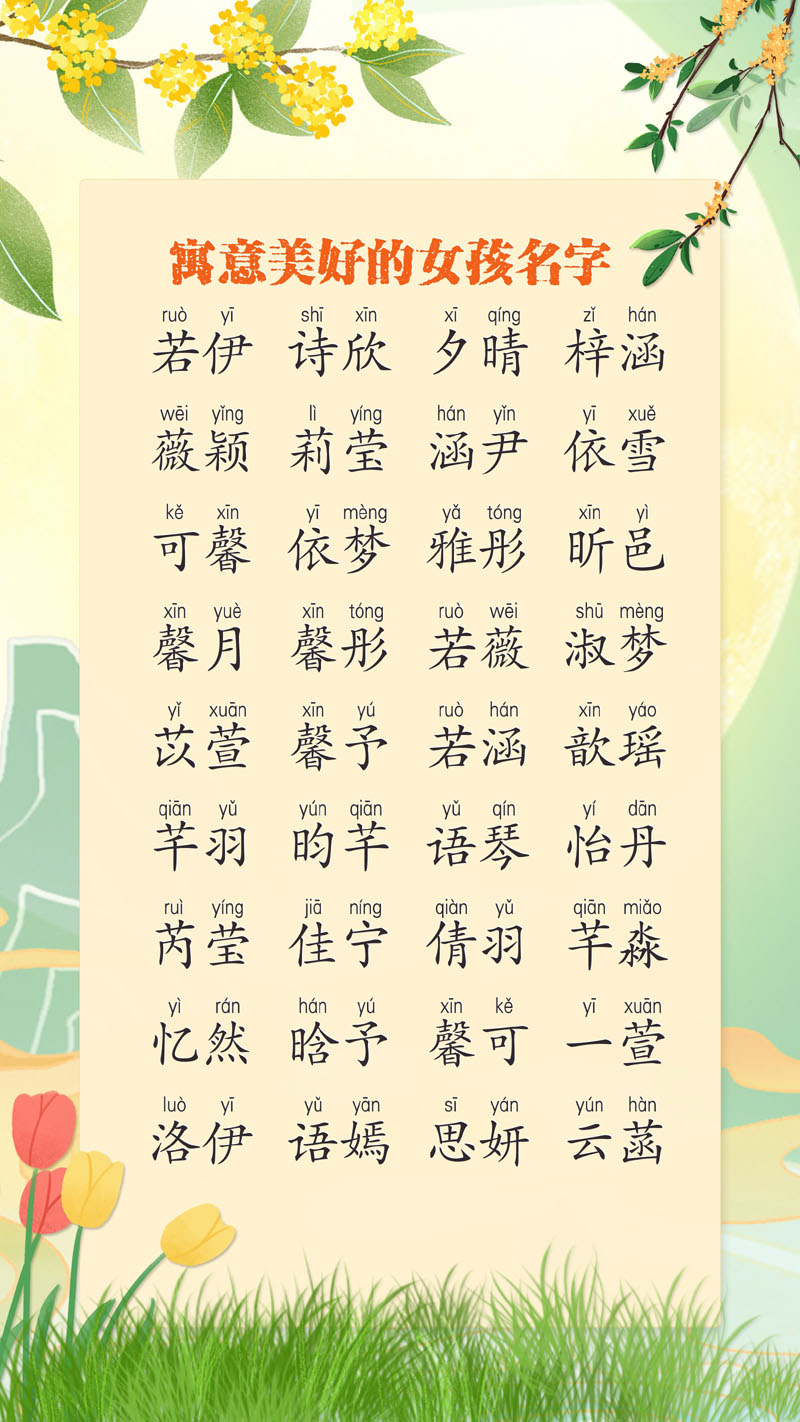 寓意美好的女孩名字
ruò yī shī xīn xī qíng zǐ hán
若伊 诗欣 夕晴 梓涵
wēi yǐng lì yíng hán yǐn yī xuě
薇颖 莉莹 涵尹 依雪
kě xīn yī mèng yǎ tóng xīn yì
可馨 依梦 雅彤 昕邑
xīn yuè xīn tóng ruò wēi shū mèng
馨月 馨彤 若薇 淑梦
yǐ xuān xīn yú ruò hán xīn yáo
苡萱 馨予 若涵 歆瑶
qiān yǔ yún qiān yǔ qín yí dān
芊羽 昀芊 语琴 怡丹
ruì yíng jiā níng qiàn yǔ qiān miǎo
芮莹 佳宁 倩羽 芊淼
yì rán hán yú xīn kě yī xuān
忆然 晗予 馨可 一萱
luò yī yǔ yān sī yán yún hàn
洛伊 语嫣 思妍 云菡